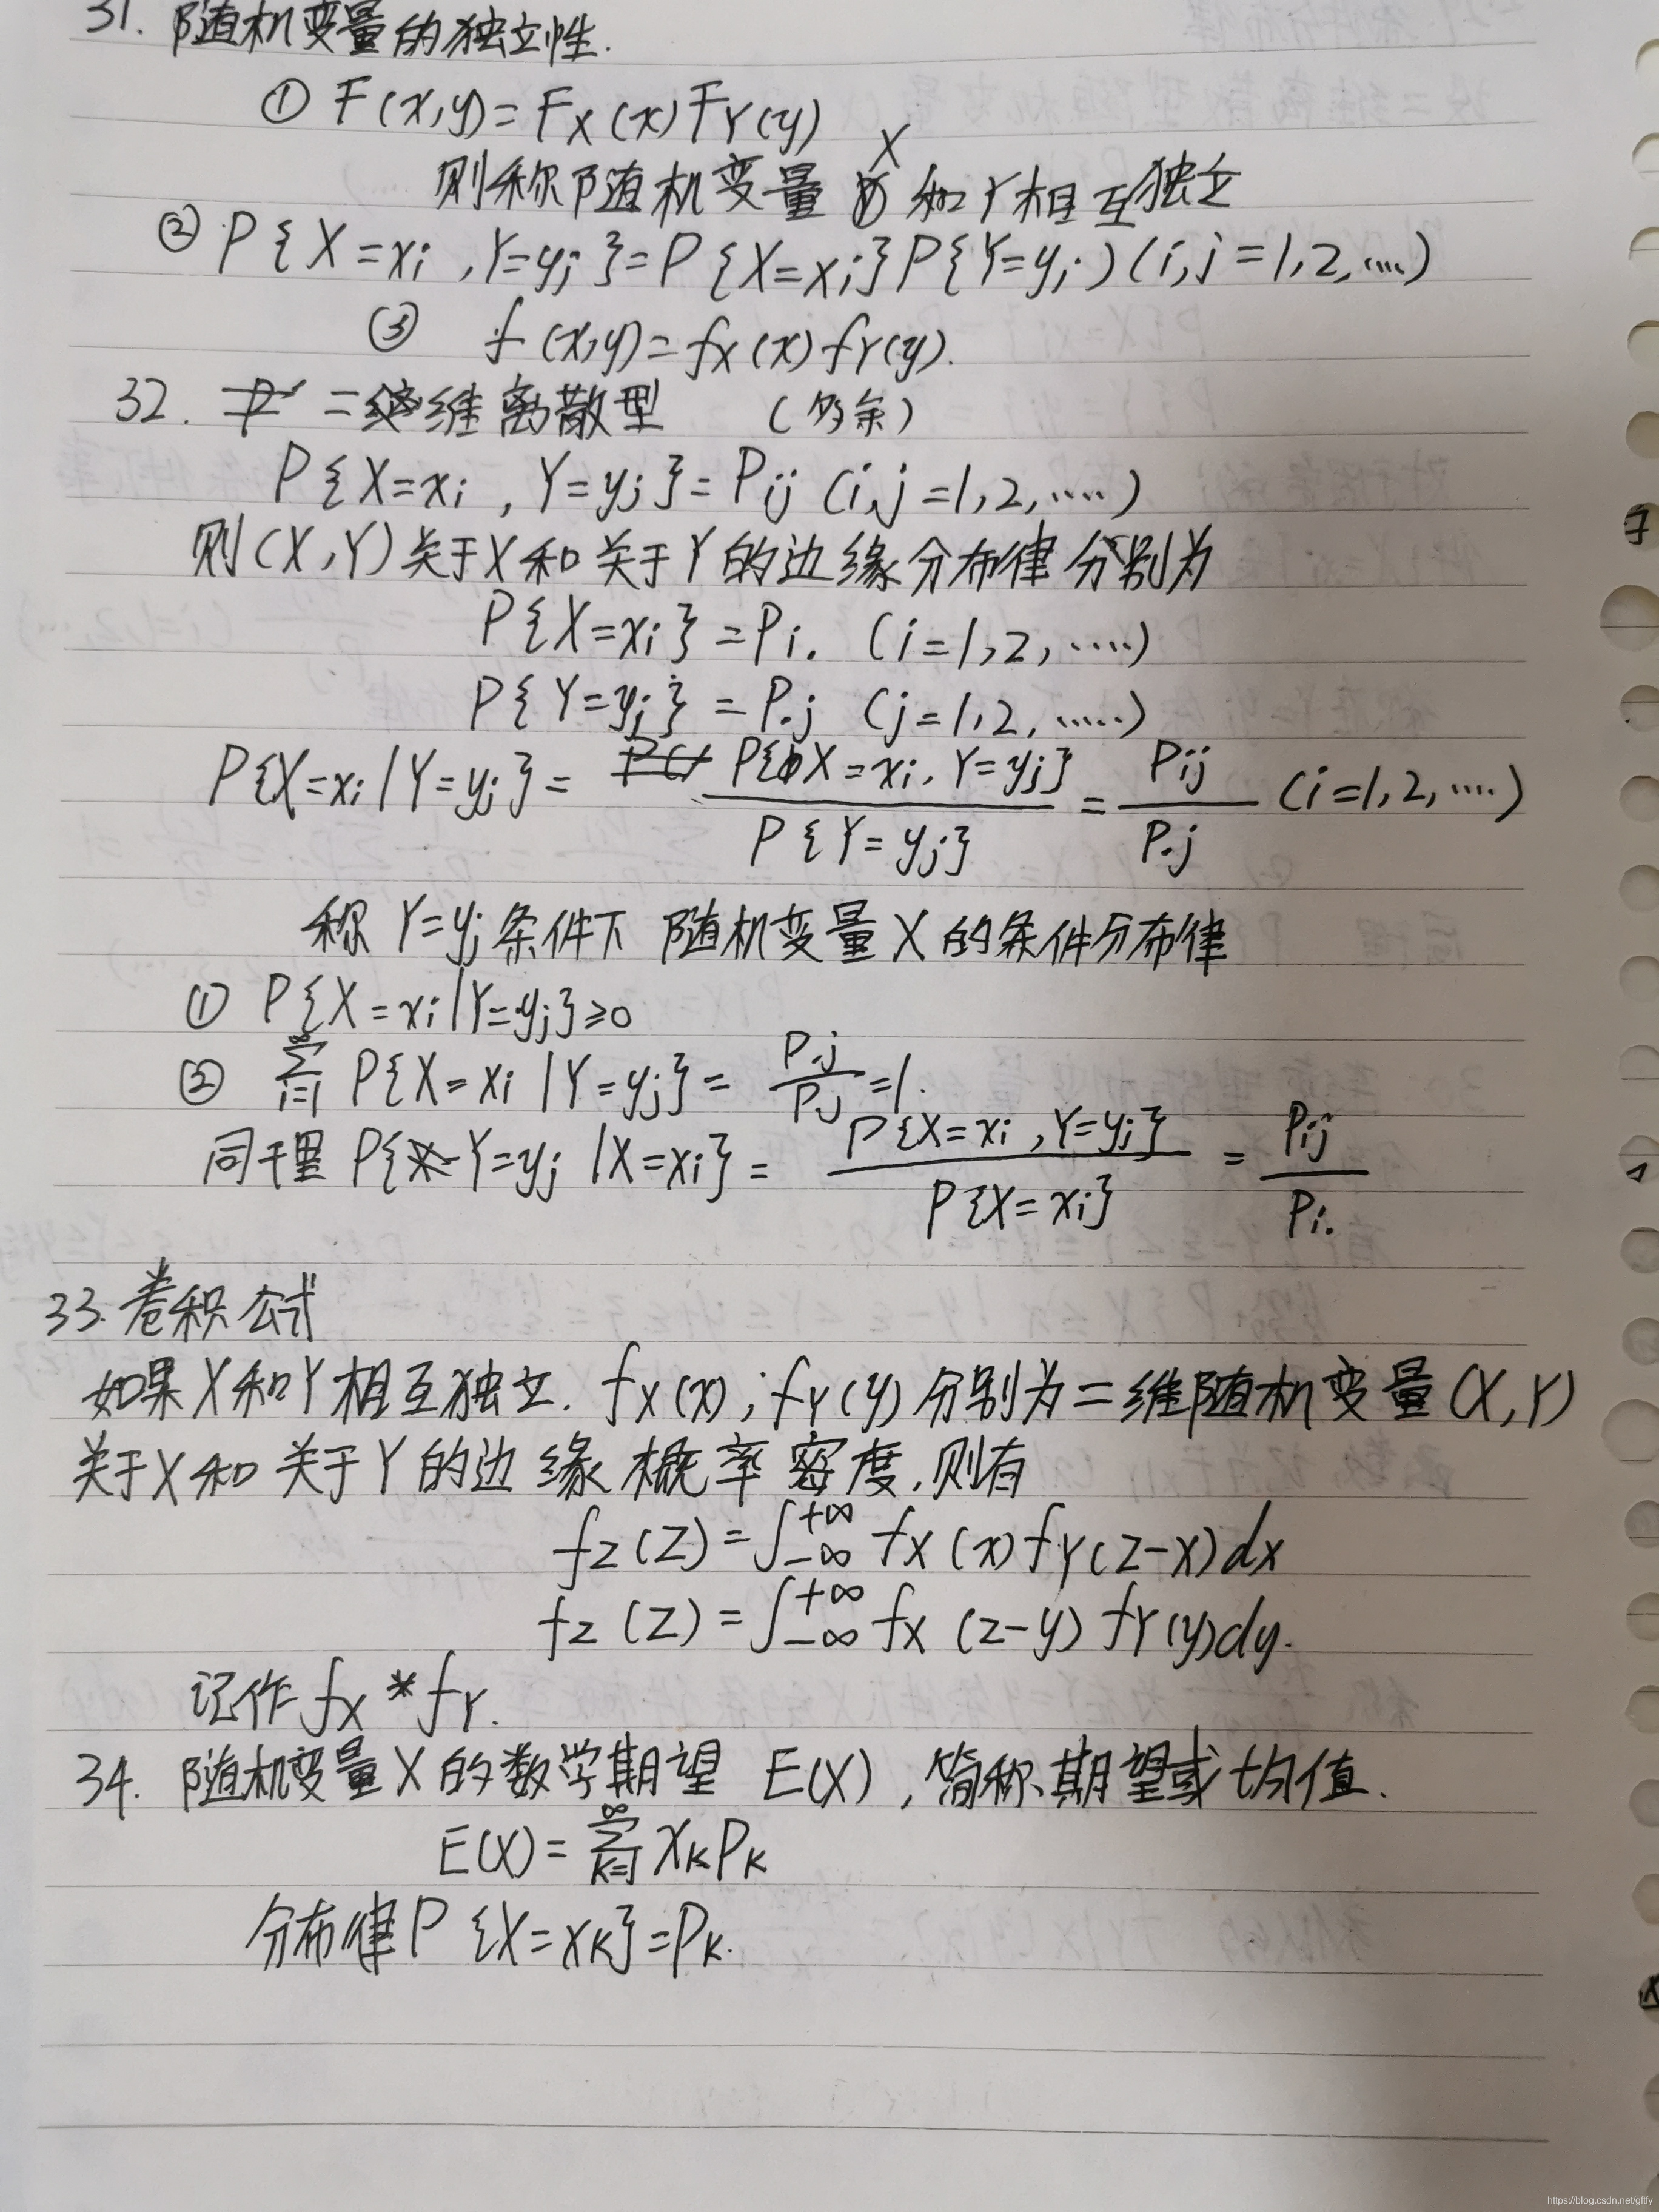 31. 随机变量的独立性.
① F(x,y)=F_X(x)F_Y(y)
则称随机变量 X 和Y相互独立
② P{X=x_i ,Y=y_j}=P{X=x_i}P{Y=y_j)(i,j=1,2,....)
③ f(x,y)=f_X(x)f_Y(y).
32. 二维离散型 (多余)
P{X=x_i , Y=y_j}=P_ij (i,j=1,2,.....)
则(X,Y)关于X和关于Y的边缘分布律分别为
P{X=x_i}=P_i. (i=1,2,.....)
P{Y=y_j}=P.j (j=1,2,.....)
P{X=x_i|Y=y_j}= P{X=x_i, Y=y_j} / P{Y=y_j} = P_ij / P.j (i=1,2,....)
称 Y=y_j条件下 随机变量X的条件分布律
① P{X=x_i|Y=y_j}≥0
② ∑_{i=1}^{∞} P{X=x_i|Y=y_j}= P.j / P.j =1.
同理 P{Y=y_j|X=x_i}= P{X=x_i ,Y=y_j} / P{X=x_i} = P_ij / P_i.
33.卷积公式
如果X和Y相互独立. f_X(x);f_Y(y)分别为二维随机变量(X,Y)
关于X和关于Y的边缘概率密度,则有
f_Z(Z)=∫_{-∞}^{+∞} f_X(x)f_Y(z-x)dx
f_Z(Z)=∫_{-∞}^{+∞} f_X(z-y)f_Y(y)dy.
记作 f_X*f_Y.
34. 随机变量X的数学期望 E(X),简称期望或均值.
E(X)=∑_{k=1}^{∞} X_K P_K
分布律P{X=X_K}=P_K.
https://blog.csdn.net/gftfy